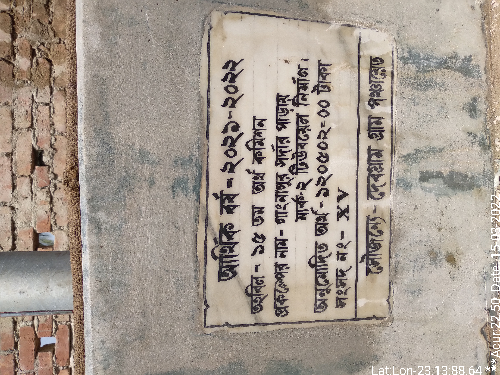 আর্থিক বর্ষ - ২০২১-২০২২
তহবিল - ১৫ তম অর্থ কমিশন
প্রকল্পের নাম - গাংনাপুর সর্দার পাড়ায়
মার্ক-২ টিউবওয়েল নির্মাণ।
অনুমোদিত অর্থ - ১২০৫০২=০০ টাকা
সংসদ নং - XV
সৌজন্যে - দেবগ্রাম গ্রাম পঞ্চায়েত
Lat Lon-23.13:88.64